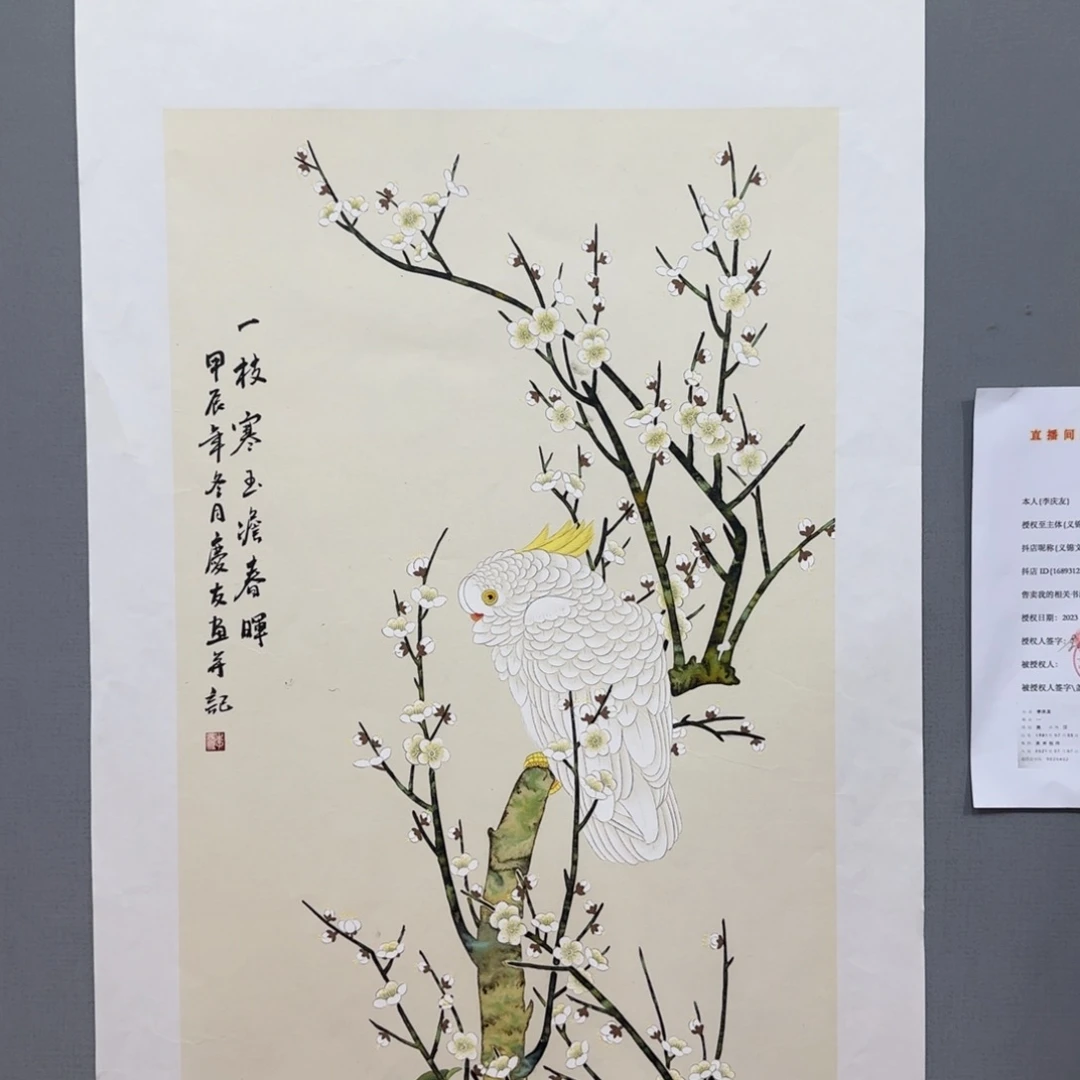 一枝寒玉澹春暉
甲辰年冬月慶友畫并記
直播间
本人{李庆友}
授权至主体{义锦
抖店昵称{义锦文
抖店 ID{1689312
售卖我的相关书
授权日期：2023
授权人签字：
被授权人：
被授权人签字\盖